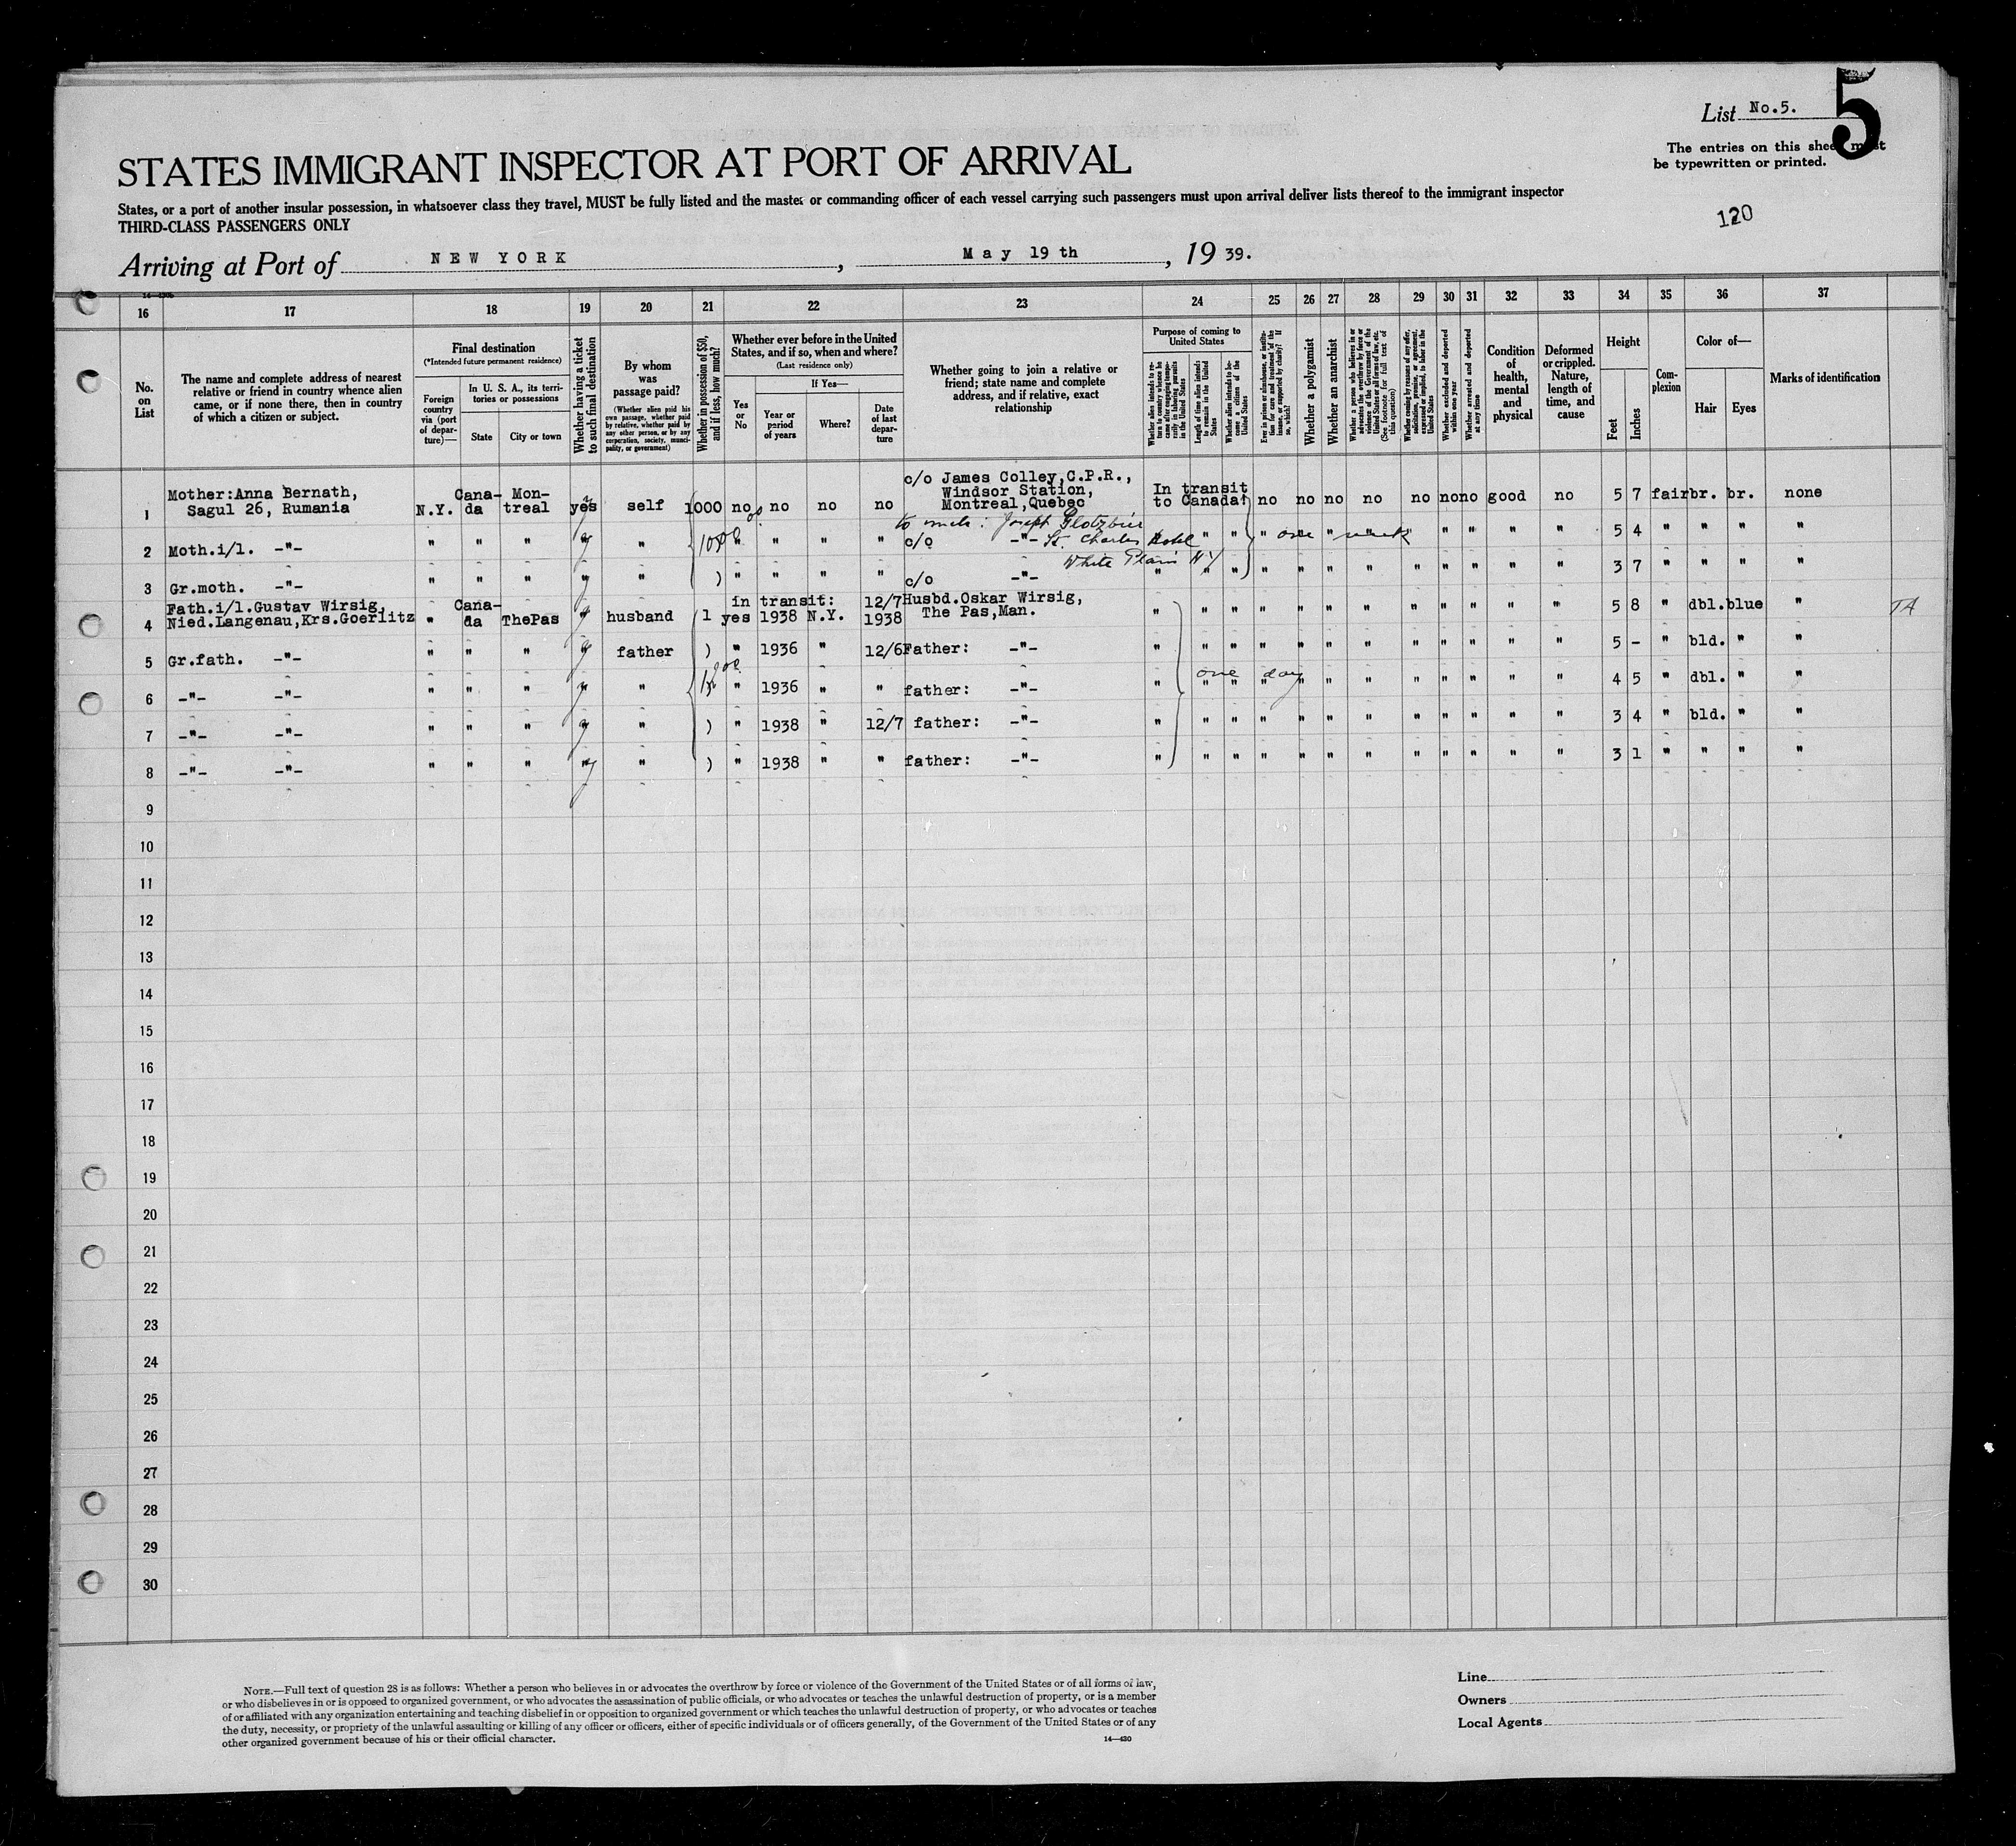 List No.5.
5
The entries on this sheet must
be typewritten or printed.
120
STATES IMMIGRANT INSPECTOR AT PORT OF ARRIVAL
States, or a port of another insular possession, in whatsoever class they travel, MUST be fully listed and the master or commanding officer of each vessel carrying such passengers must upon arrival deliver lists thereof to the immigrant inspector
THIRD-CLASS PASSENGERS ONLY
Arriving at Port of NEW YORK, May 19 th, 19 39.
16 17 18 19 20 21 22 23 24 25 26 27 28 29 30 31 32 33 34 35 36 37
No. on List
The name and complete address of nearest relative or friend in country whence alien came, or if none there, then in country of which a citizen or subject.
Final destination
(*Intended future permanent residence)
Foreign country via (port of departure)—
In U. S. A., its territories or possessions
State
City or town
Whether having a ticket to such final destination
By whom was passage paid?
(Whether alien paid his own passage, whether paid by relative, whether paid by any other person, or by any corporation, society, municipality, or government)
Whether in possession of $50, and if less, how much?
Whether ever before in the United States, and if so, when and where?
(Last residence only)
If Yes—
Yes or No
Year or period of years
Where?
Date of last departure
Whether going to join a relative or friend; state name and complete address, and if relative, exact relationship
Purpose of coming to United States
Whether alien intends to return to country whence he came after engaging temporarily in laboring pursuits in the United States
Length of time alien intends to remain in the United States
Whether alien intends to become a citizen of the United States
Ever in prison or almshouse, or institution for care and treatment of the insane, or supported by charity? If so, which?
Whether a polygamist
Whether an anarchist
Whether a person who believes in or advocates the overthrow by force or violence of the Government of the United States or all forms of law, etc. (See footnote for full text of this question)
Whether coming by reasons of any offer, solicitation, promise, or agreement, expressed or implied, to labor in the United States
Whether excluded and deported within one year
Whether arrested and deported at any time
Condition of health, mental and physical
Deformed or crippled. Nature, length of time, and cause
Height
Feet
Inches
Complexion
Color of—
Hair
Eyes
Marks of identification
1 Mother:Anna Bernath, Sagul 26, Rumania N.Y. Canada Montreal yes self 1000 no no no no c/o James Colley,C.P.R., Windsor Station, Montreal,Quebec In transit to Canada! no no no no no no no good no 5 7 fair br. br. none
to uncle: Joseph Glotzbier
2 Moth.i/l. -"- " " " y " 1000 " " " " c/o -"- St. Charles Hotel " " " one " week " " " " " 5 4 " " " "
White Plains NY
3 Gr.moth. -"- " " " y " ) " " " " c/o -"- " " " " " " " " " " " " 3 7 " " " "
4 Fath.i/l.Gustav Wirsig, Nied.Langenau,Krs.Goerlitz " Canada ThePas y husband (1 in transit: yes 1938 N.Y. 12/7 1938 Husbd.Oskar Wirsig, The Pas,Man. " " " " " " " " " " " " 5 8 " dbl. blue " TA
5 Gr.fath. -"- " " " y father ) " 1936 " 12/6 Father: -"- " " " " " " " " " " " " 5 - " bld. " "
6 -"- -"- " " " y " " 1936 " " father: -"- " one " day " " " " " " " " 4 5 " dbl. " "
7 -"- -"- " " " y " ) " 1938 " 12/7 father: -"- " " " " " " " " " " " " 3 4 " bld. " "
8 -"- -"- " " " y " ) " 1938 " " father: -"- " " " " " " " " " " " " 3 1 " " " "
9
10
11
12
13
14
15
16
17
18
19
20
21
22
23
24
25
26
27
28
29
30
NOTE.—Full text of question 28 is as follows: Whether a person who believes in or advocates the overthrow by force or violence of the Government of the United States or of all forms of law,
or who disbelieves in or is opposed to organized government, or who advocates the assassination of public officials, or who advocates or teaches the unlawful destruction of property, or is a member
of or affiliated with any organization entertaining and teaching disbelief in or opposition to organized government or which teaches the unlawful destruction of property, or who advocates or teaches
the duty, necessity, or propriety of the unlawful assaulting or killing of any officer or officers, either of specific individuals or of officers generally, of the Government of the United States or of any
other organized government because of his or their official character.
14—430
Line
Owners
Local Agents